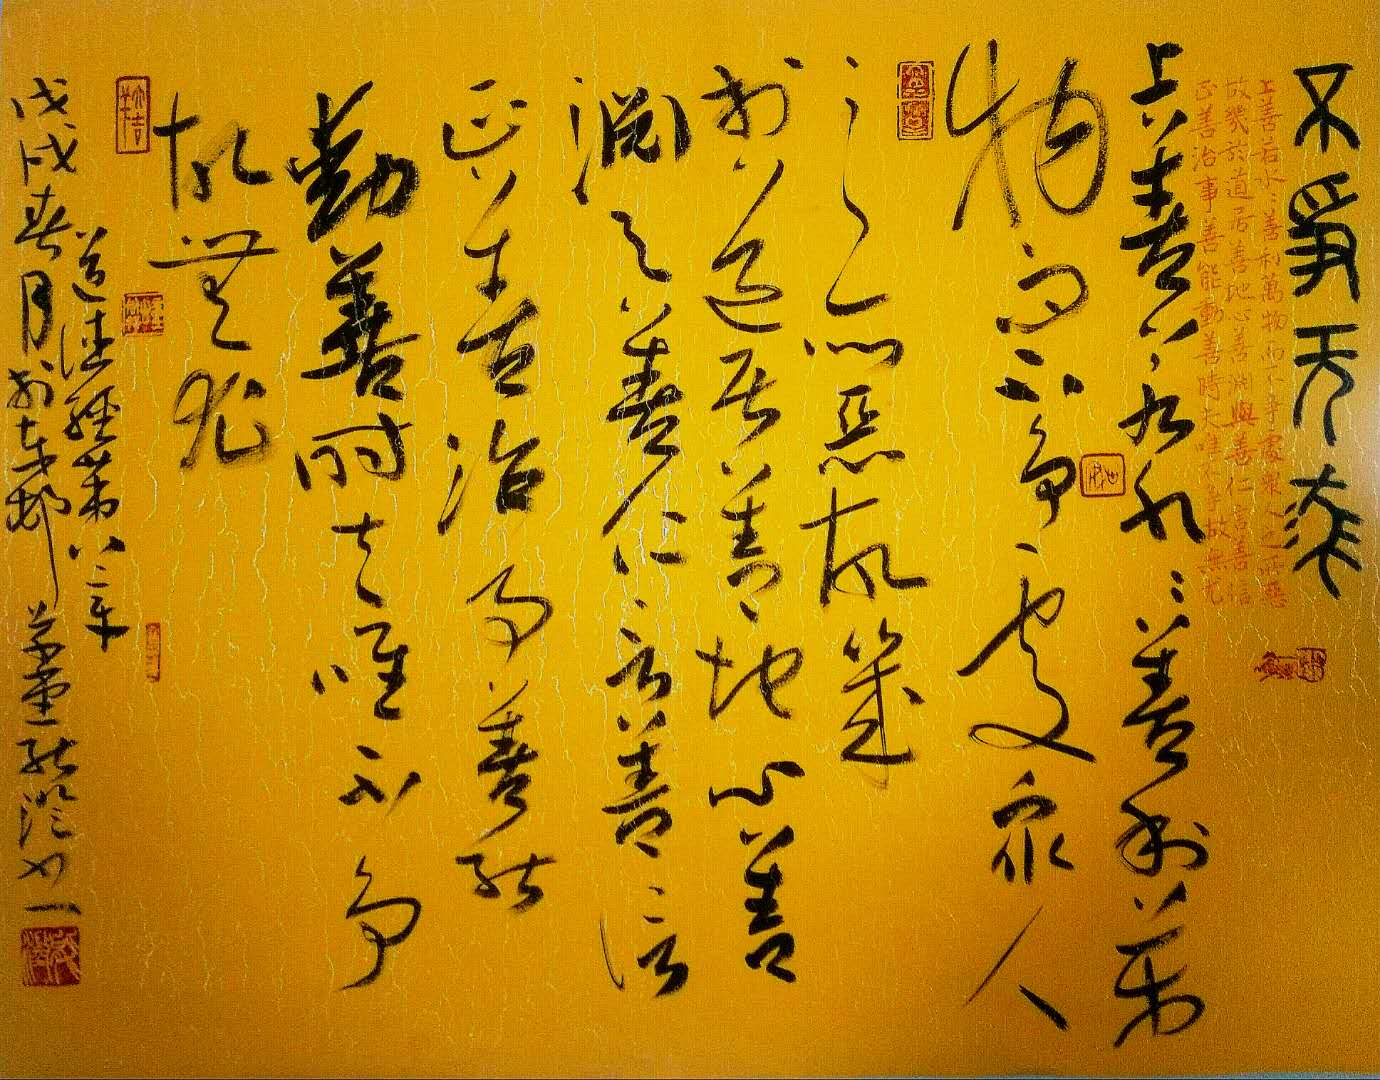 不爭无
上善若水：善利萬物而不爭處眾人之所惡
故幾於道居善地心善淵與善仁言善信
正善治事善能動善時夫唯不爭故無尤
上善若水：善利萬
物而不争處眾人
之所惡故幾
於道居善地心善
淵与善仁言善信
正善治事善能
動善時夫唯不争
故無尤
道德經第八章
戊戌春月於草堂